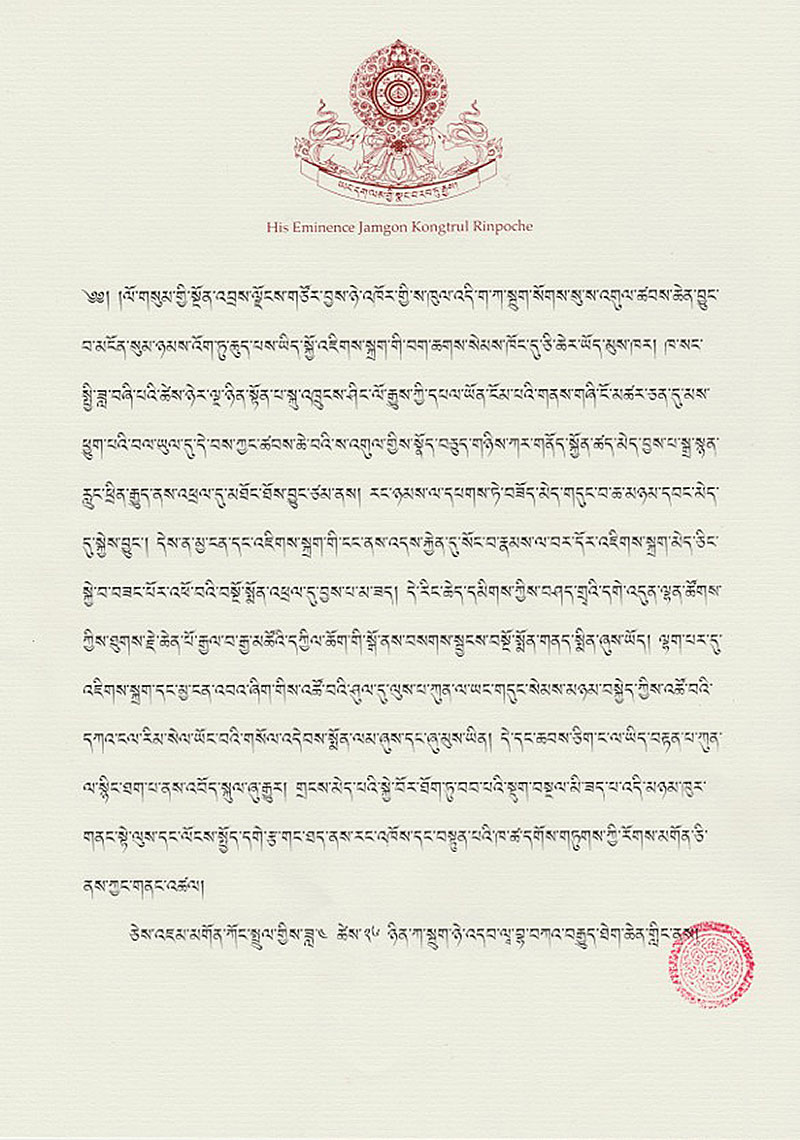 ཡང་དག་ལམ་གྱི་སྣང་བ་རབ་ཏུ་རྒྱས།
His Eminence Jamgon Kongtrul Rinpoche
༄༅། །ལོ་གསུམ་གྱི་སྔོན་འབྲས་ལྗོངས་གཙོར་བྱས་ཉེ་འཁོར་གྱི་ས་ཁུལ་འདི་ག་ཀ་སྦུག་སོགས་སུ་ས་འགུལ་ཚབས་ཆེན་བྱུང་
བ་མངོན་སུམ་ཉམས་འོག་ཏུ་ཆུད་པས་ཡིད་སྐྱོ་འཇིགས་སྐྲག་གི་བག་ཆགས་སེམས་ཁོང་དུ་ཅི་ཆེར་ཡོད་མུས་ཁར། ཁ་སང་
སྤྱི་ཟླ་བཞི་པའི་ཚེས་ཉེར་ལྔ་ཉིན་སྟོན་པ་སྐུ་འཁྲུངས་ཤིང་ལོ་རྒྱུས་ཀྱི་དཔལ་ཡོན་ངོམ་པའི་གནས་གཞི་ངོ་མཚར་ཅན་དུ་མས་
ཕྱུག་པའི་བལ་ཡུལ་དུ་དེ་བས་ཀྱང་ཚབས་ཆེ་བའི་ས་འགུལ་གྱིས་སྣོད་བཅུད་གཉིས་ཀར་གནོད་སྐྱོན་ཚད་མེད་བྱས་པ་སྒྲ་སྙན་
རླུང་ཕྲིན་རྒྱུད་ནས་འཕྲལ་དུ་མཐོང་ཐོས་བྱུང་ཙམ་ནས། རང་ཉམས་ལ་དཔགས་ཏེ་བཟོད་མེད་གདུང་བ་ཆ་མཉམ་དབང་མེད་
དུ་སྐྱེས་བྱུང་། དེས་ན་མྱ་ངན་དང་འཇིགས་སྐྲག་གི་ངང་ནས་འདས་རྐྱེན་དུ་སོང་བ་རྣམས་ལ་བར་དོར་འཇིགས་སྐྲག་མེད་ཅིང་
སྐྱེ་བ་བཟང་པོར་འཕོ་བའི་བསྔོ་སྨོན་འཕྲལ་དུ་བྱས་པ་མ་ཟད། དེ་རིང་ཆེད་དམིགས་ཀྱིས་བཤད་གྲྭའི་དགེ་འདུན་ལྷན་ཚོགས་
ཀྱིས་ཐུགས་རྗེ་ཆེན་པོ་རྒྱལ་བ་རྒྱ་མཚོའི་དཀྱིལ་ཆོག་གི་སྒོ་ནས་བསགས་སྦྱངས་བསྔོ་སྨོན་གནད་སྨིན་ཞུས་ཡོད། ལྷག་པར་དུ་
འཇིགས་སྐྲག་དང་མྱ་ངན་འབའ་ཞིག་གིས་འཚོ་བའི་ཤུལ་དུ་ལུས་པ་ཀུན་ལ་ཡང་གདུང་སེམས་མཉམ་བསྐྱེད་ཀྱིས་འཚོ་བའི་
དཀའ་ངལ་རིམ་སེལ་ཡོང་བའི་གསོལ་འདེབས་སྨོན་ལམ་ཞུས་དང་ཞུ་མུས་ཡིན། དེ་དང་ཆབས་ཅིག་ང་ལ་ཡིད་བརྟན་པ་ཀུན་
ལ་སྙིང་ཐག་པ་ནས་འབོད་སྐུལ་ཞུ་རྒྱུར། གྲངས་མེད་པའི་སྐྱེ་བོར་ཐོག་ཏུ་བབ་པའི་སྡུག་བསྔལ་མི་ཟད་པ་འདི་མཉམ་ཁུར་
གནང་སྟེ་ལུས་དང་ལོངས་སྤྱོད་དགེ་རྩ་གང་ཐད་ནས་རང་འཁོས་དང་བསྟུན་པའི་ཁ་ཚ་དགོས་གཏུགས་ཀྱི་རོགས་མགོན་ཅི་
ནས་ཀྱང་གནང་འཚལ།
ཅེས་འཇམ་མགོན་ཀོང་སྤྲུལ་གྱིས་ཟླ་༤ ཚེས་༢༦ ཉིན་ཀ་སྦུག་ཉེ་འདབ་ལཱ་བྷ་བཀའ་བརྒྱུད་ཐེག་ཆེན་གླིང་ནས།